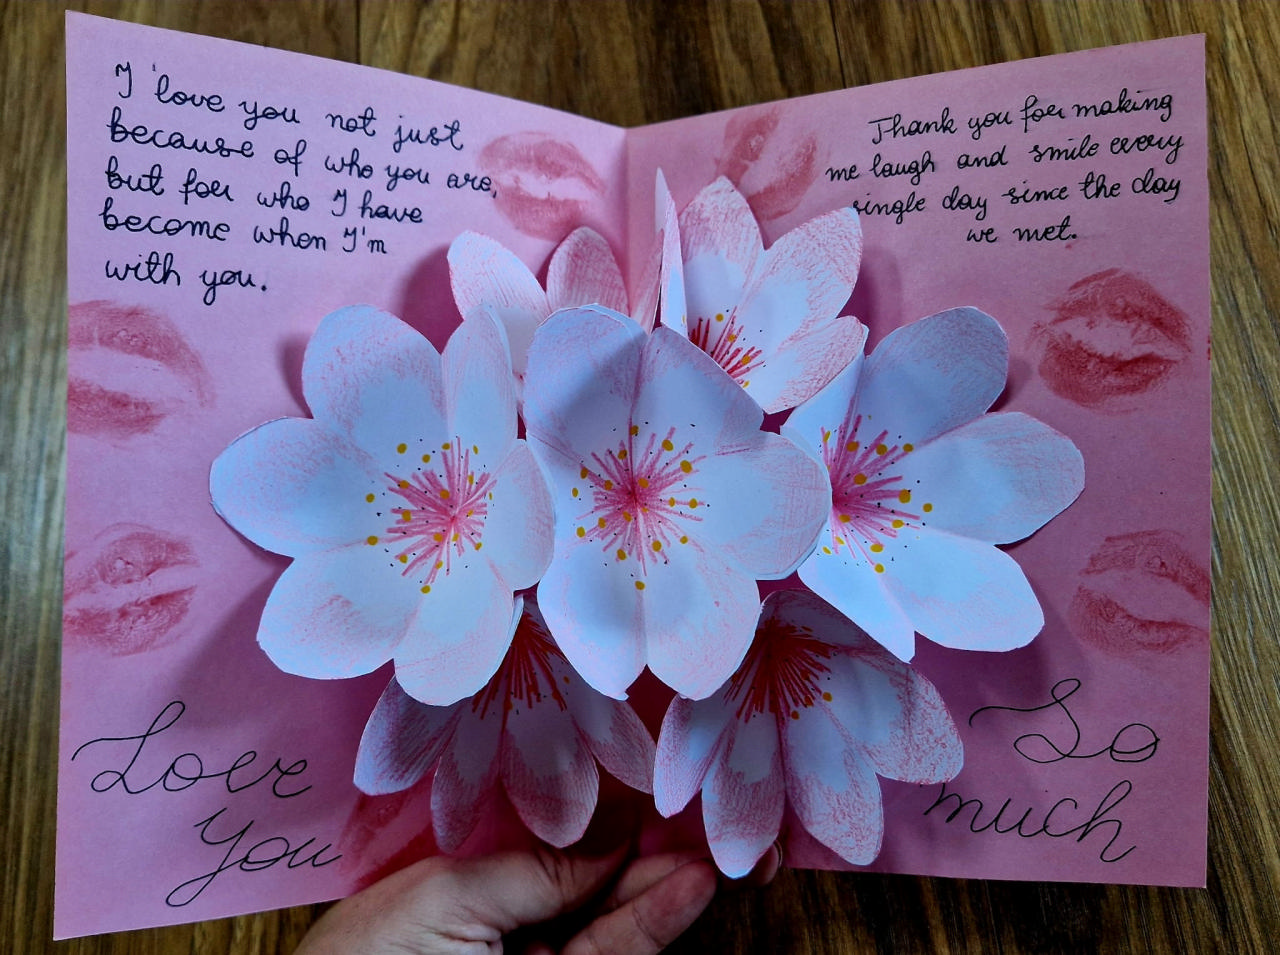 I love you not just
because of who you are,
but for who I have
become when I'm
with you.
Thank you for making
me laugh and smile every
single day since the day
we met.
Love
You
So
much